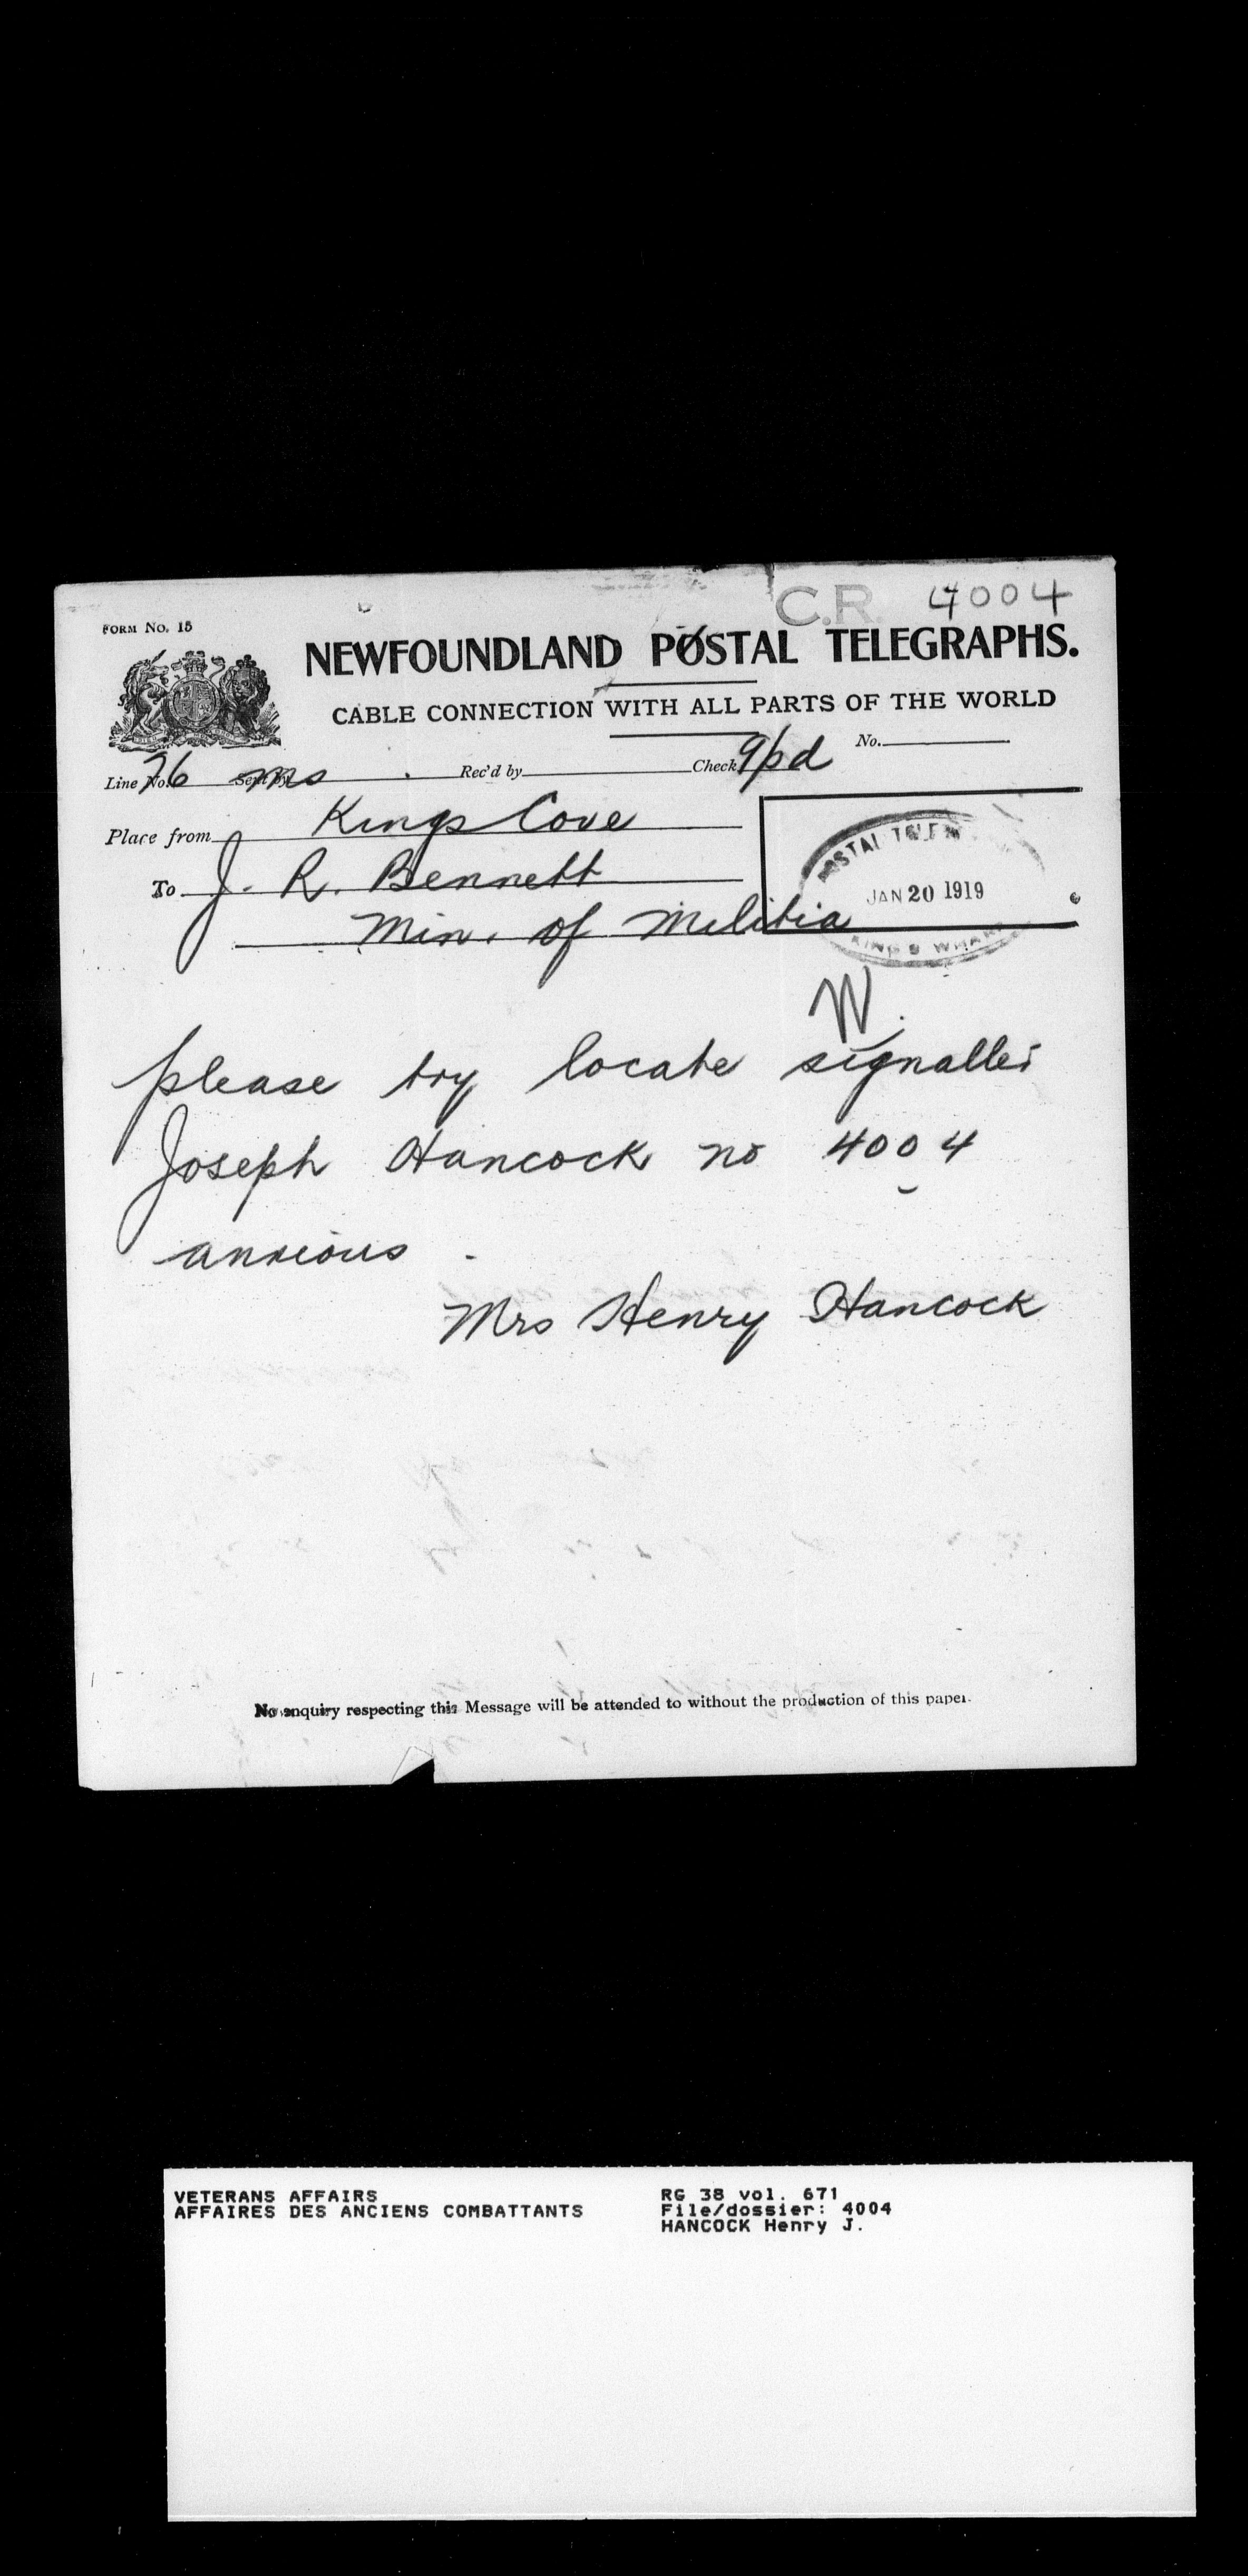 C.R. 4004
FORM No. 15
NEWFOUNDLAND POSTAL TELEGRAPHS.
CABLE CONNECTION WITH ALL PARTS OF THE WORLD
No.
Line No. 76 Sent by ms Rec'd by Check 9pd
Place from Kings Cove
To J. R. Bennett
Min. of Militia
POSTAL TELE
JAN 20 1919
KING'S WHARF
W.
please try locate signaller
Joseph Hancock no 4004
anxious
Mrs Henry Hancock
No enquiry respecting this Message will be attended to without the production of this paper.
VETERANS AFFAIRS
AFFAIRES DES ANCIENS COMBATTANTS
RG 38 vol. 671
File/dossier: 4004
HANCOCK Henry J.